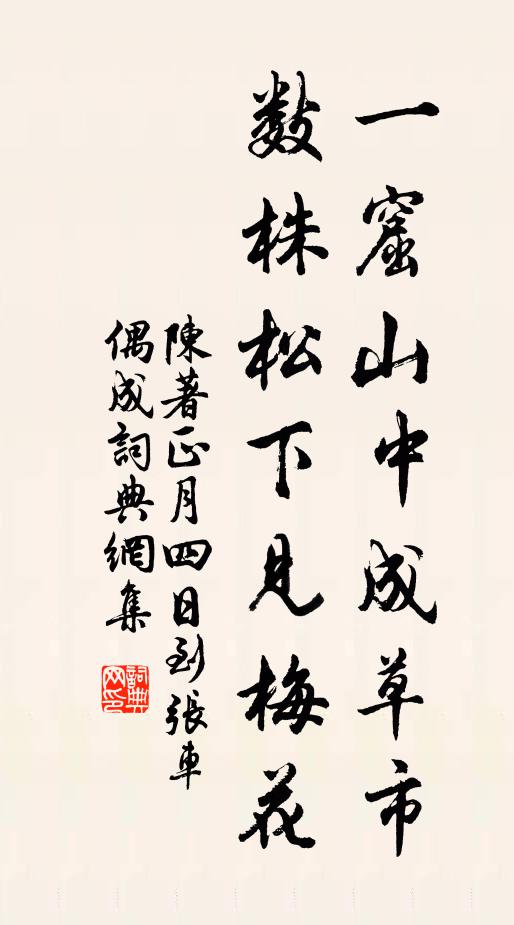 一窟山中成草市
数株松下見梅花
陳著正月四日到張車
偶成詞典網集
詞典
网印